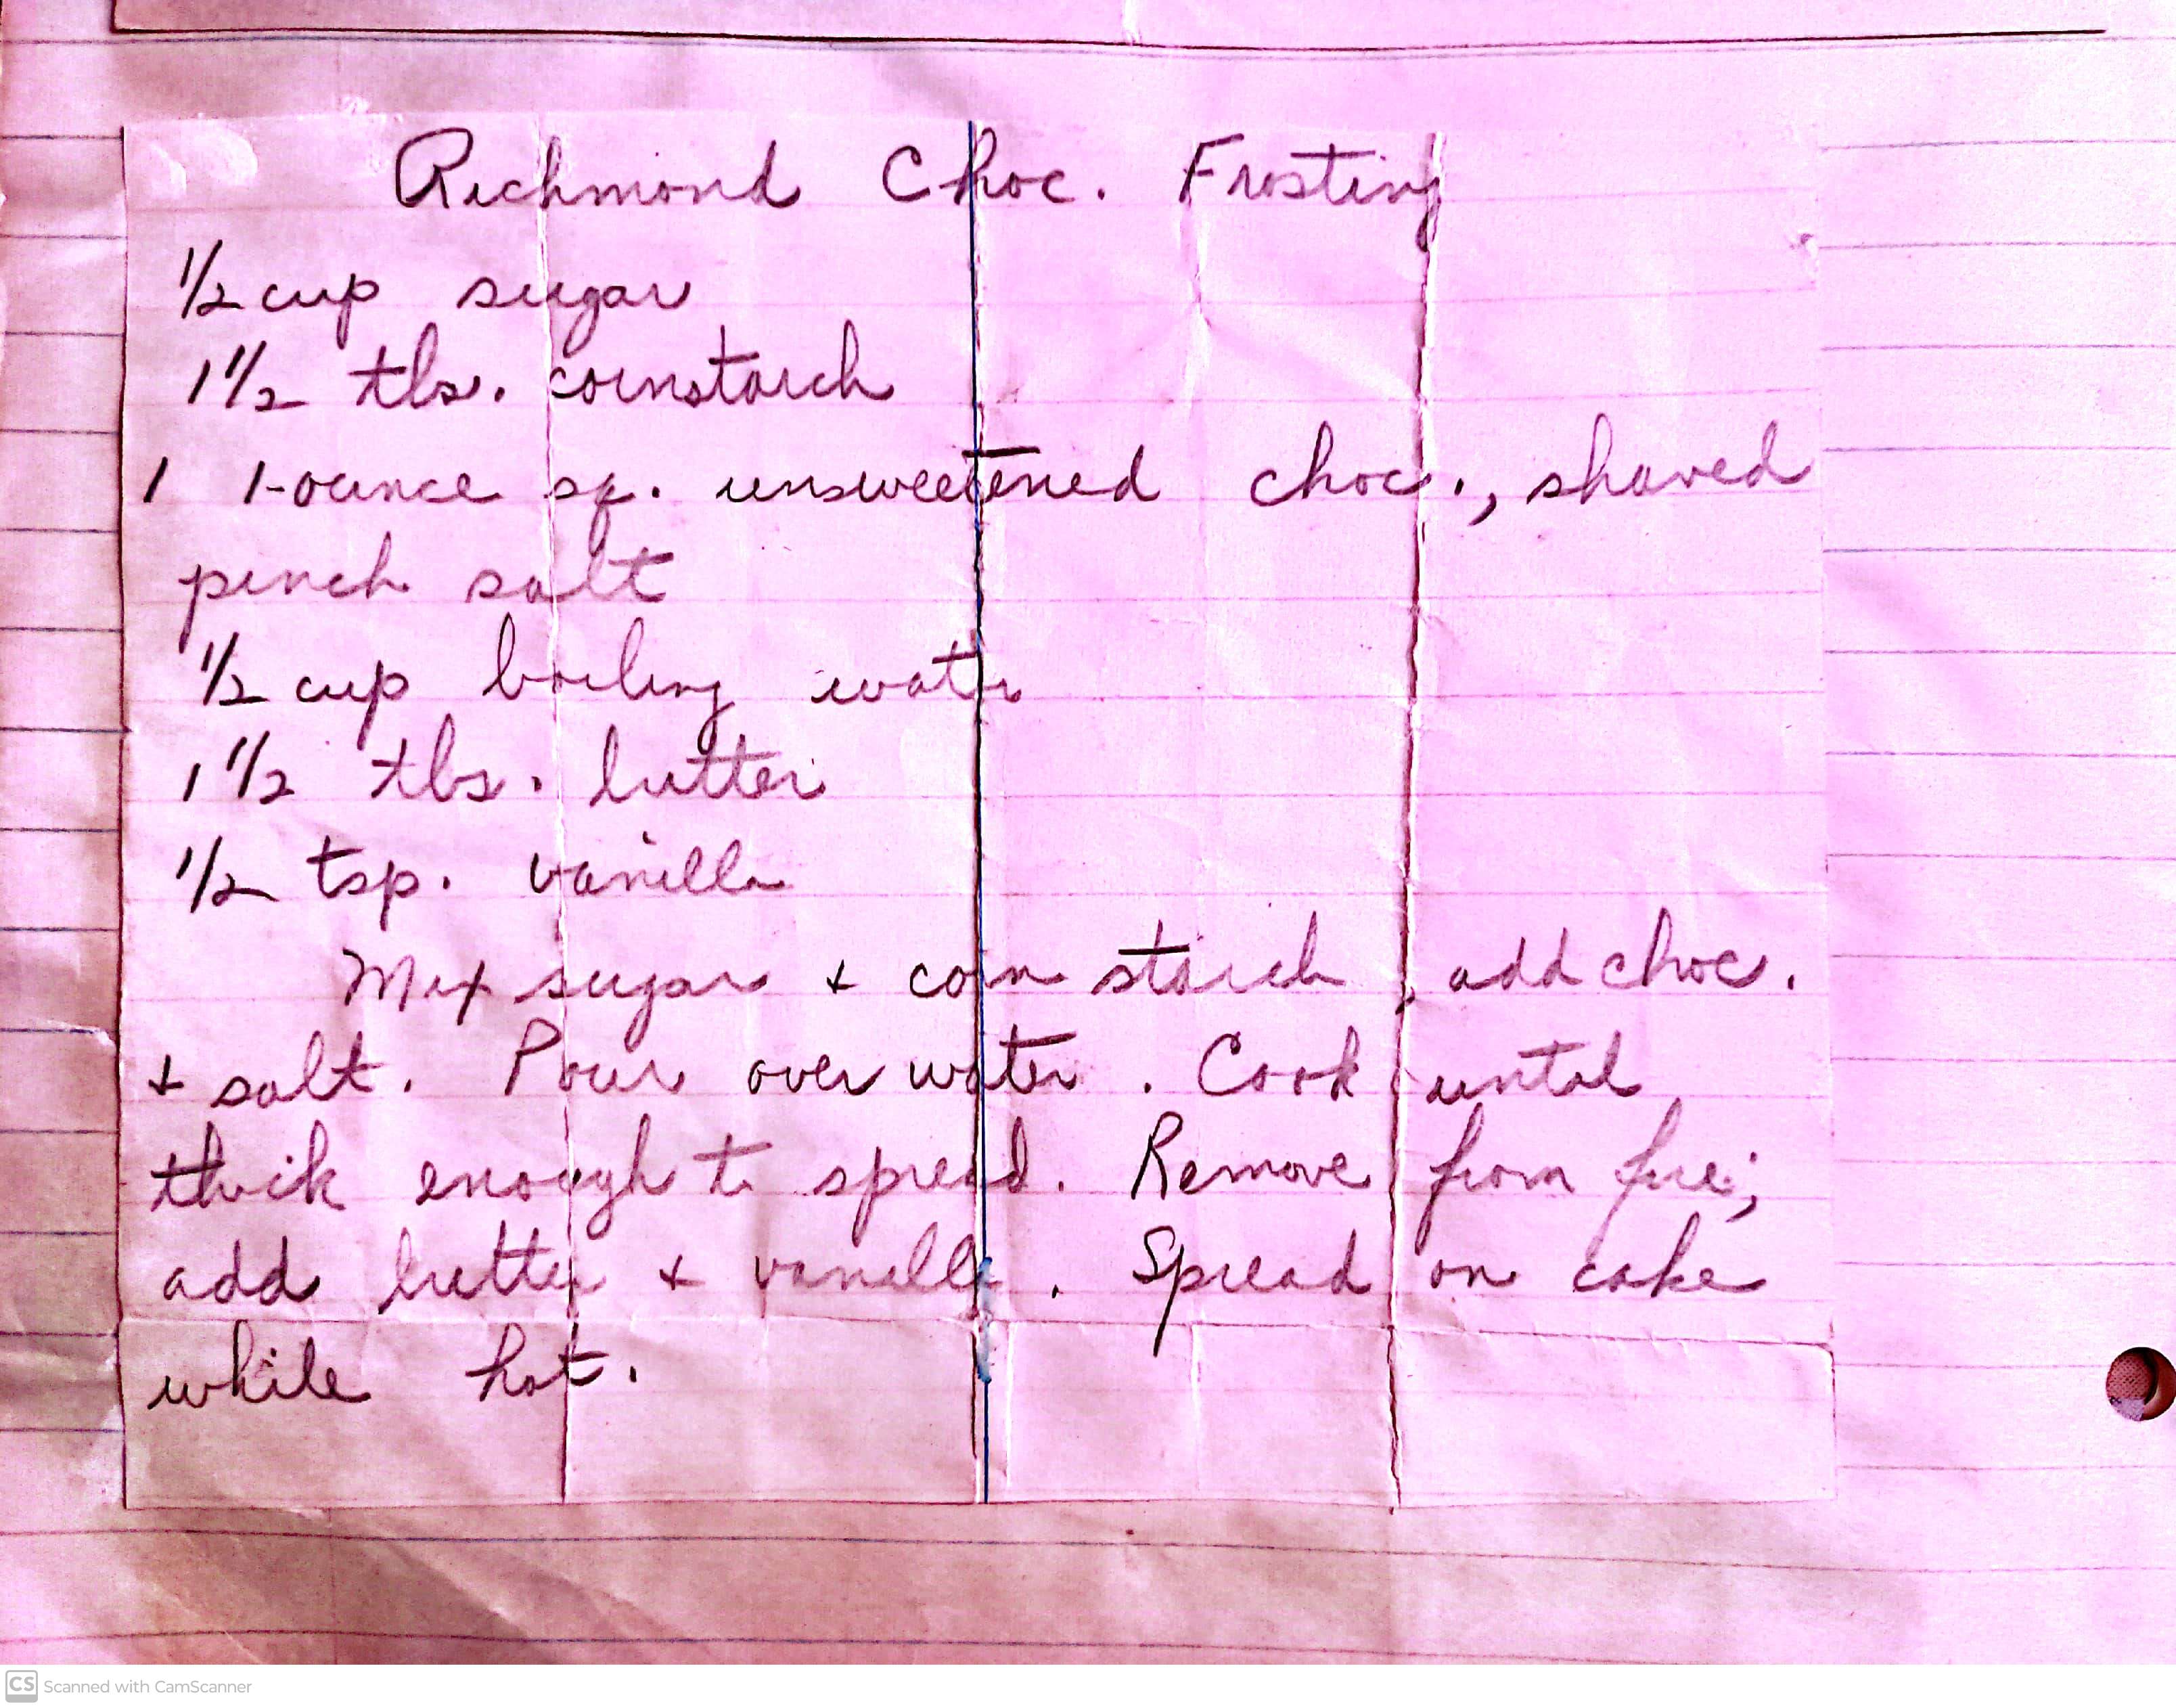 Richmond Choc. Frosting
1/2 cup sugar
1 1/2 tbs. cornstarch
1 1-ounce sq. unsweetened choc., shaved
pinch salt
1/2 cup boiling water
1 1/2 tbs. butter
1/2 tsp. vanilla
Mix sugar + corn starch, add choc.
+ salt. Pour over water. Cook until
thick enough to spread. Remove from fire;
add butter + vanilla. Spread on cake
while hot.
CS Scanned with CamScanner